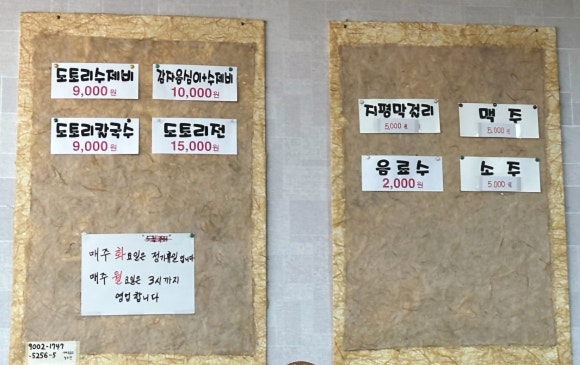 도토리수제비
9,000원
감자옹심이+수제비
10,000원
도토리칼국수
9,000원
도토리전
15,000원
매주 화요일은 정기휴일입니다
매주 월요일은 3시까지
영업합니다
9002-1747
-5256-5
지평막걸리
5,000원
맥주
5,000원
음료수
2,000원
소주
5,000원